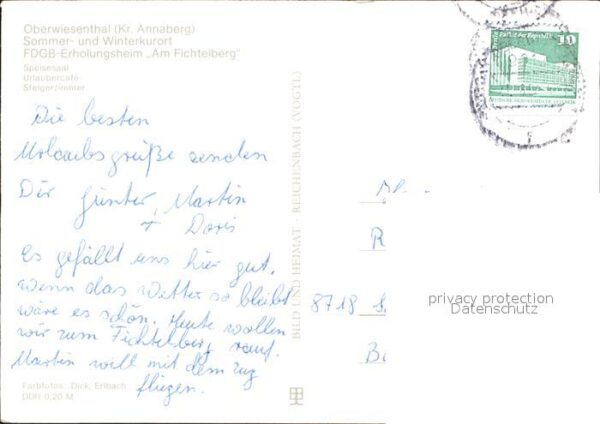 Oberwiesenthal (Kr. Annaberg)
Sommer- und Winterkurort
FDGB-Erholungsheim „Am Fichtelberg"
Speisesaal
Urlaubercafé
Steigerzimmer
Die besten
Urlaubsgrüße senden
Dir Günter, Martin
+ Doris
Es gefällt uns hier gut,
wenn das Wetter so bleibt
wäre es schön. Heute wollen
wir zum Fichtelberg rauf.
Martin will mit dem Zug
fliegen.
Farbfotos: Dick, Erlbach
DDR 0,20 M
BILD UND HEIMAT · REICHENBACH (VOGTL)
10
8718
privacy protection
Datenschutz